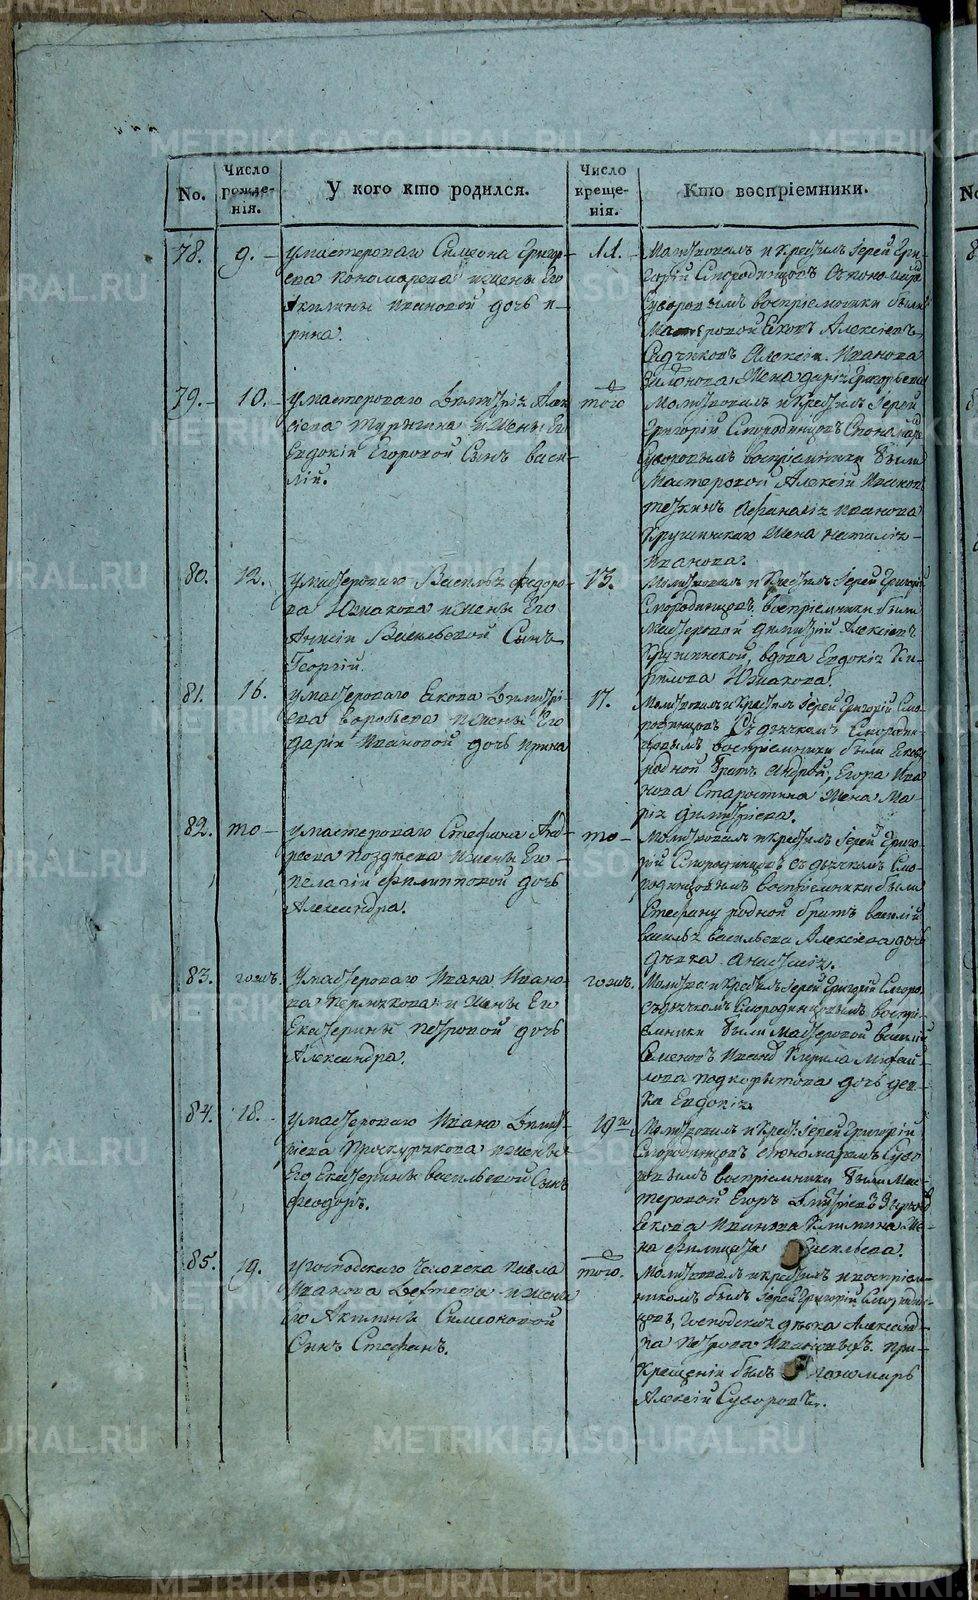 No.
Число рожде-нія.
У кого кто родился.
Число креще-нія.
Кто воспріемники.
78.
9.
У мастероваго Симеона Григор-
ева Пономарева и жены Его
Акилины Ивановой дочь И-
рина.
11.
Молитвовалъ и крестилъ Іерей Гри-
горій Смородинцовъ съ пономаремъ
Суворовымъ воспріемники были
Мастеровой Алексіевъ
Алексія Иванова
жена дарія Григорьева
79.
10.
У мастероваго Димитрія Алек-
сіева и жены Его
Евдокіи Егоровой Сынъ Васи-
лій.
того
Молитвовалъ и крестилъ Іерей
Григорій Смородинцовъ Спономаремъ
Суворовымъ воспріемники были
Мастеровой Алексій Иванов
Афанасія Иванова
Кручинина жена Наталія
Иванова.
80.
12.
У мастероваго Василья Федоро-
ва Южакова и жены Его
Анисіи Васильевой Сынъ
Георгій.
13.
Молитвовалъ и крестилъ Іерей Григорій
Смородинцовъ, воспріемники были
Мастеровой Димитрій Алексіевъ
вдова Евдокія Ки-
рилова Южакова.
81.
16.
У мастероваго Екова Димитрі-
ева Воробьева и жены Его
Даріи Ивановой дочь Ирина
17.
Молитвовалъ и крестилъ Іерей Григорій Смо-
родинцовъ Съ дьячкомъ Смородин-
цовымъ воспріемники были
родной братъ Андрей, Егора Ива
нова Старостина жена Ма-
рія Димитріева.
82.
то
У мастероваго Стефана Анд-
реева Поздѣева и жены Его
Пелагіи Филипповой дочь
Александра.
то
Молитвовалъ и крестилъ Іерей Григо-
рій Смородинцовъ съ дьячкомъ Смо-
родинцовымъ воспріемники были
Стефану родной братъ Василій
Василья Васильева Алексіева дочь
дѣвка Анастасія.
83.
тожъ
У мастероваго Ивана Ивано-
ва и жены Его
Екатерины Петровой дочь
Александра.
тожъ.
Іерей Григорій Сморо.
Съ дьячкомъ Смородинцовымъ воспрі-
емники были Мастеровой Василій
Семеновъ Кирила Михай-
лова Подкорытова дочь дев-
ка Евдокія.
84.
18.
У мастероваго Ивана Димит-
ріева Проскурякова и жены
Его Екатерины Васильевой Сынъ
Феодоръ.
19
Молитвовалъ и крест: Іерей Григорій
Смородинцовъ спономаремъ Суво
ровымъ воспріемники были Мас-
теровой Егоръ Димитріевъ
Екова Иванова жена
Васильева.
85.
19.
У господскаго человека Павла
Иванова и жены
Его Акилины Симеоновой
Сынъ Стефанъ.
того.
Молитвовалъ и крестилъ и воспріем-
никомъ былъ Іерей Григорій Смородин-
цовъ, Господская дѣвка Александ-
ра Петрова При
Крещеніи былъ Пономарь
Алексій Суворовъ.
METRIKI.GASO-URAL.RU